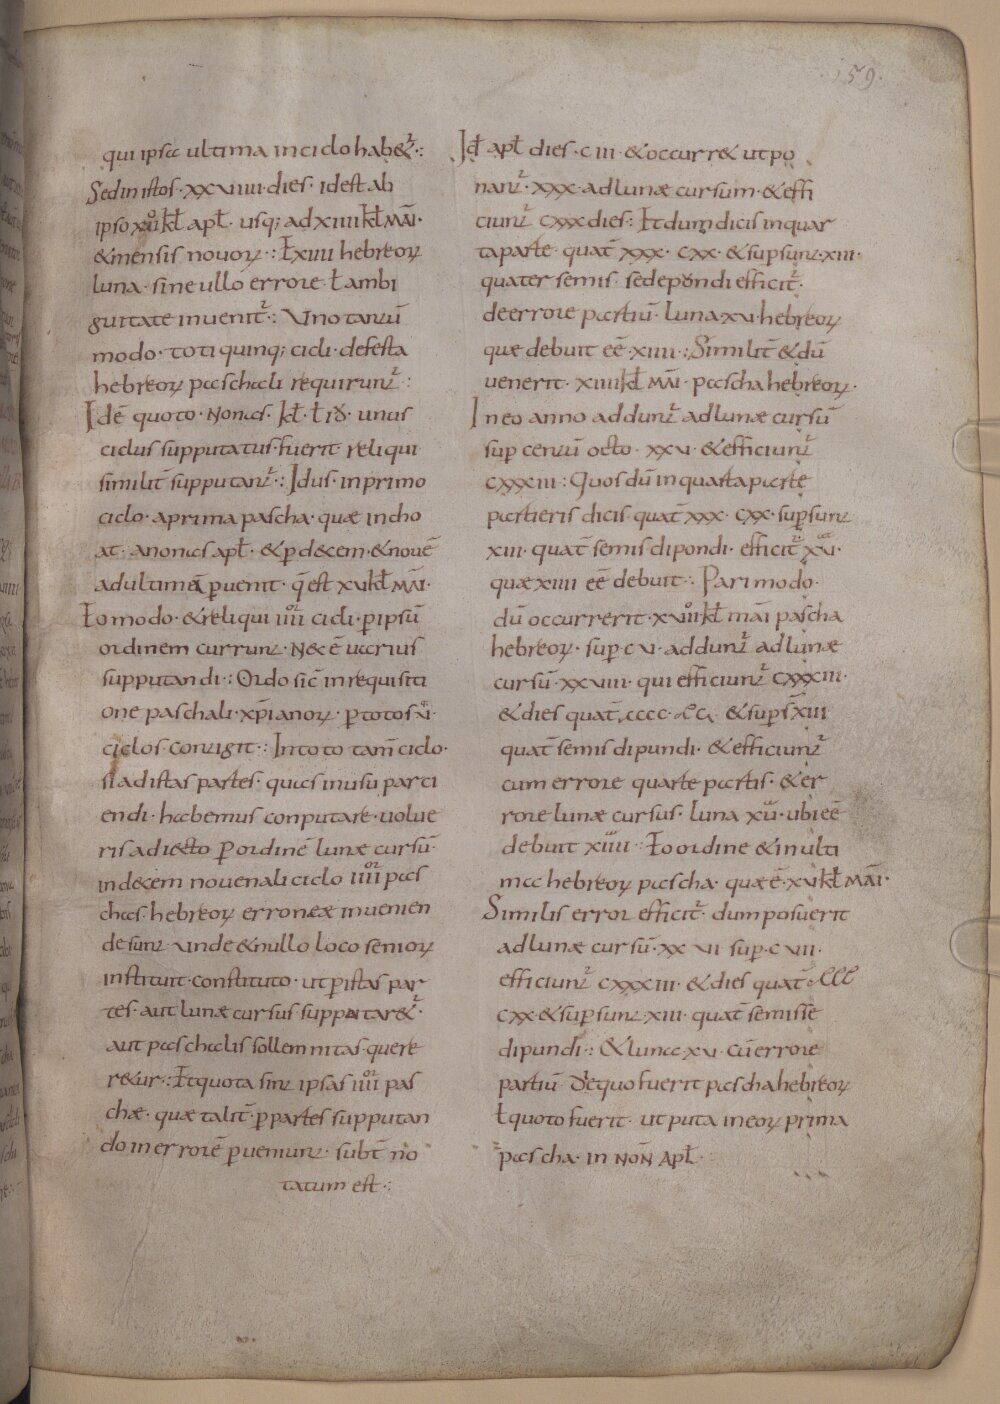 159.
qui ipsa ultima in ciclo hab&ur̄.:
Sed in istos· xxviiii· dies· id est ab
ipso kł apł· usq; ad xiiii kł māi·
& mensis novorꝝ·: ł xiiii hebreorꝝ
luna· sine ullo errore· ł ambi
guitate invenit̄·: Uno tantū
modo· toti quinq; cicli· de festa
hebreorꝝ paschali requirunt̄:
Idē quoto· nonas· kł· ł id· unus
ciclus supputatus· fuerit reliqui
similit̄ supputant̄·: Idus· in primo
ciclo· a prima pascha· quæ incho
at· a nonas apł· & p̄ decem· & novē
ad ultimā p̄venit· q̄ est xvi kł māi·
modo· & reliqui iiii cicli· p ipsū
ordinem currunt· Nec ē uarius
supputandi·: Ordo sic̄ in requisiti
one paschali· xp̄ianorꝝ· p totos
ciclos· contigit·: In toto tam̄ ciclo·
si ad istas partes· quas in usu parti
endi· habemus conputare· volue
ris adiecto p ordinē lunæ cursū·
in decem novenali ciclo iiii pas
chas· hebreorꝝ erroneæ invenien
de sunt· unde & nullo loco seniorꝝ
instituit· constituto· ut p istas par
tes· aut lunæ cursus supputar&ur̄·
aut paschalis sollemnitas· quere
r&ur·: Et quota sint ipsas iiii pas
chæ· quæ talit̄· p partes supputan
do in errorē pveniunt· subt̄ no
tatum est·:
Id apł dies· c iii· & occurr& ut po
nant̄· xxx· ad lunæ cursum· & effi
ciunt̄ cxxx dies: Et dum dicis in quar
ta parte· quat̄ xxx· cxx· & supsunt· xiii·
quater semis· se depondi efficit̄·
de errore partiū· luna· xvi· hebreorꝝ
quæ debuit eē xiiii·: Similit̄ & dū
venerit· xiiii kł māi· pascha hebreorꝝ·
In eo anno addunt̄ ad lunæ cursū
sup centū octo· xxvi· & efficiunt̄
cxxxiii: Quos dū in quarta parte
partieris dicis quat̄ xxx· cxx· supsunt
xiii· quat̄ semis dipondi· efficit̄ xvi·
quæ xiiii eē debuit·: Pari modo·
dū occurrerit· kł māi pascha
hebreorꝝ· sup c vi· addunt̄ ad lunæ
cursū· xxviii· qui efficiunt̄ cxxxiii·
& dies quat̄ & sups̄ xiii
quat̄ semis dipundi· & efficiunt̄
cum errore quarte partis· & er
rore lunæ cursus· luna xvi· ubi eē
debuit xiiii· ordine & in ulti
ma hebreorꝝ pascha· quæ ē· xvi kł māi·
Similis error efficit̄· dum posuerit
ad lunæ cursū· xxvii sup· c viii·
efficiunt̄ cxxxiii· & dies quat̄
cxx· & supsunt xiii· quat̄ semissē
dipundi·: & luna· xvi· cū errore
partiū· De quo fuerit pascha hebreorꝝ
ł quoto fuerit· ut puta in eorꝝ prima
pascha· in noñ apł·